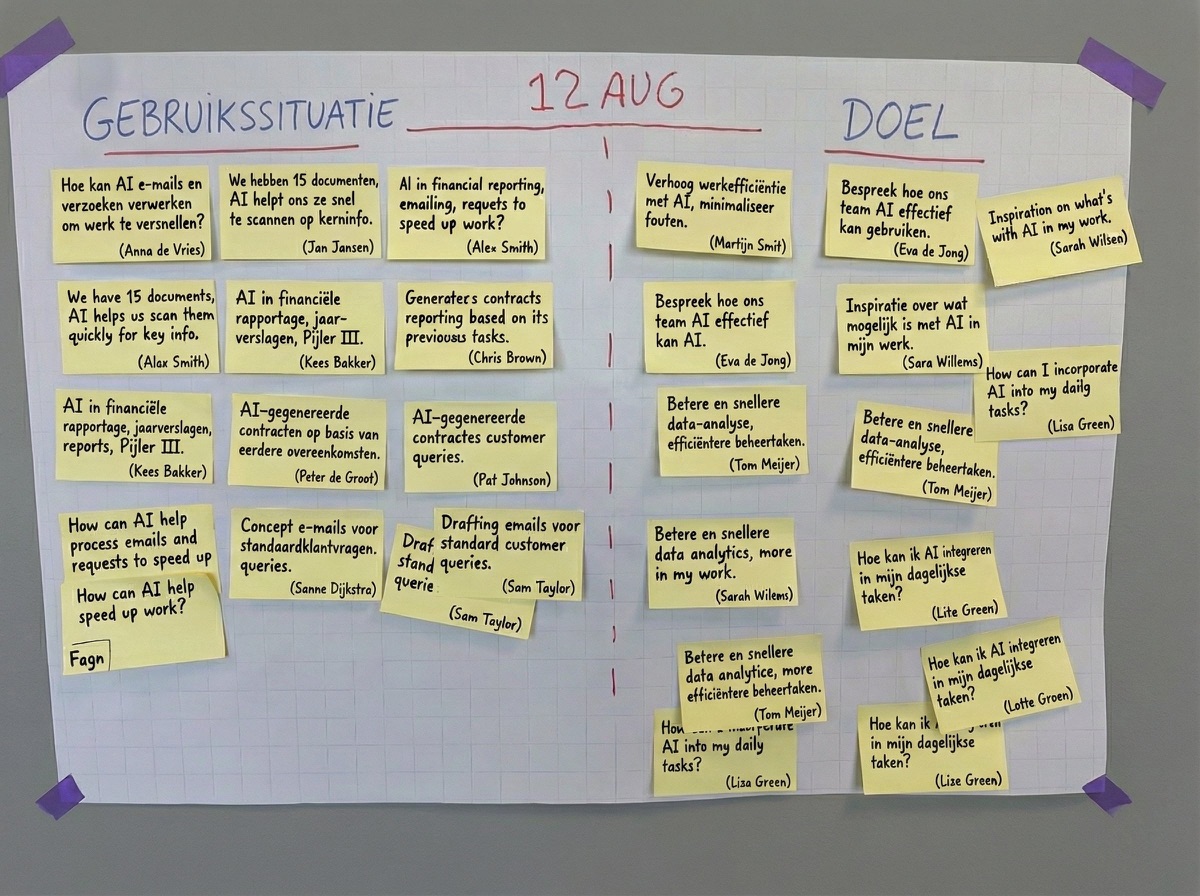 12 AUG
GEBRUIKSSITUATIE
Hoe kan AI e-mails en
verzoeken verwerken
om werk te versnellen?
(Anna de Vries)
We hebben 15 documenten,
AI helpt ons ze snel
te scannen op kerninfo.
(Jan Jansen)
AI in financial reporting,
emailing, requets to
speed up work?
(Alex Smith)
We have 15 documents,
AI helps us scan them
quickly for key info.
(Alax Smith)
AI in financiële
rapportage, jaar-
verslagen, Pijler III.
(Kees Bakker)
Generaters contracts
reporting based on its
previousus tasks.
(Chris Brown)
AI in financiële
rapportage, jaarverslagen,
reports, Pijler III.
(Kees Bakker)
AI-gegenereerde
contracten op basis van
eerdere overeenkomsten.
(Peter de Groot)
AI-gegenereerde
contractes customer
queries.
(Pat Johnson)
How can AI help
process emails and
requests to speed up
How can AI help
speed up work?
Fagn
Concept e-mails voor
standaardklantvragen.
queries.
(Sanne Dijkstra)
Draf
stand
querie
(Sam Taylor)
Drafting emails voor
standard customer
queries.
(Sam Taylor)
DOEL
Verhoog werkefficiëntie
met AI, minimaliseer
fouten.
(Martijn Smit)
Bespreek hoe ons
team AI effectief
kan gebruiken.
(Eva de Jong)
Inspiration on what's
with AI in my work.
(Sarah Wilsen)
Bespreek hoe ons
team AI effectief
kan AI.
(Eva de Jong)
Inspiratie over wat
mogelijk is met AI in
mijn werk.
(Sara Willems)
How can I incorporate
AI into my daily
tasks?
(Lisa Green)
Betere en snellere
data-analyse,
efficiëntere beheertaken.
(Tom Meijer)
Betere en snellere
data-analyse,
efficiëntere beheertaken.
(Tom Meijer)
Betere en snellere
data analytics, more
in my work.
(Sarah Wilems)
Hoe kan ik AI integreren
in mijn dagelijkse
taken?
(Lite Green)
Betere en snellere
data analytice, more
efficiëntere beheertaken.
(Tom Meijer)
How
AI into my daily
tasks?
(Liza Green)
Hoe kan ik AI integreren
in mijn dagelijkse
taken?
(Lotte Groen)
Hoe kan ik
in mijn dagelijkse
taken?
(Lize Green)